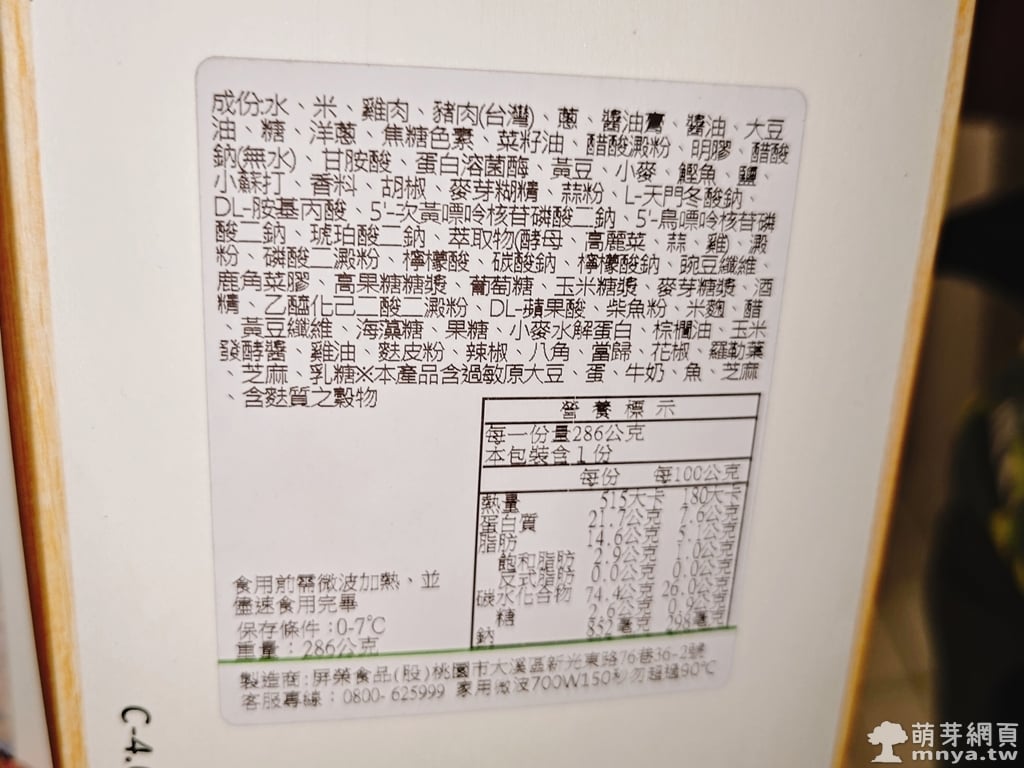 成份:水、米、雞肉、豬肉(台灣)、蔥、醬油膏、醬油、大豆
油、糖、洋蔥、焦糖色素、菜籽油、醋酸澱粉、明膠、醋酸
鈉(無水)、甘胺酸、蛋白溶菌酶、黃豆、小麥、鰹魚、鹽、
小蘇打、香料、胡椒、麥芽糊精、蒜粉、L-天門冬酸鈉、
DL-胺基丙酸、5'-次黃嘌呤核苷磷酸二鈉、5'-鳥嘌呤核苷磷
酸二鈉、琥珀酸二鈉、萃取物(酵母、高麗菜、蒜、雞)、澱
粉、磷酸二澱粉、檸檬酸、碳酸鈉、檸檬酸鈉、豌豆纖維、
鹿角菜膠、高果糖糖漿、葡萄糖、玉米糖漿、麥芽糖漿、酒
精、乙醯化己二酸二澱粉、DL-蘋果酸、柴魚粉、米麴、醋
、黃豆纖維、海藻糖、果糖、小麥水解蛋白、棕櫚油、玉米
發酵醬、雞油、麩皮粉、辣椒、八角、當歸、花椒、羅勒葉
、芝麻、乳糖※本產品含過敏原大豆、蛋、牛奶、魚、芝麻
、含麩質之穀物
營養標示
每一份量286公克
本包裝含1份
每份 每100公克
熱量 515大卡 180大卡
蛋白質 21.7公克 7.6公克
脂肪 14.6公克 5.1公克
飽和脂肪 2.9公克 1.0公克
反式脂肪 0.0公克 0.0公克
碳水化合物 74.4公克 26.0公克
糖 2.6公克 0.9公克
鈉 852毫克 298毫克
食用前需微波加熱、並
儘速食用完畢
保存條件:0-7℃
重量:286公克
製造商:屏榮食品(股)桃園市大溪區新光東路76巷36-2號
客服專線:0800-625999 家用微波700W150秒勿超過90℃
C-4.
萌芽網頁
mnya.tw